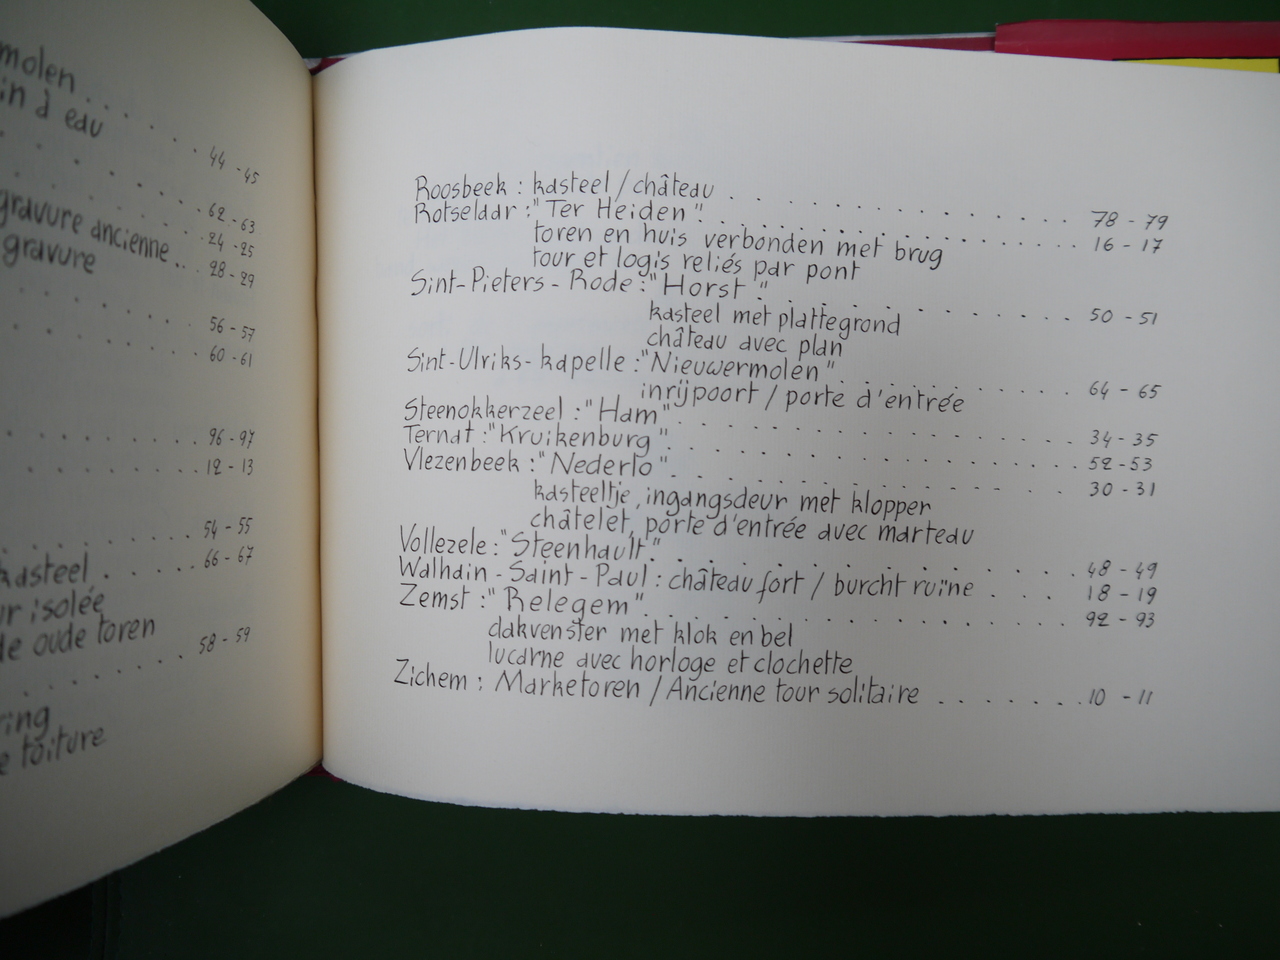 molen . .
in à eau . . . . . 44 - 45
. . . . . . 62 - 63
. . . . . . 24 - 25
gravure ancienne . . . 28 - 29
gravure
. . . . . . 56 - 57
. . . . . . 60 - 61
. . . . . . 96 - 97
. . . . . . 12 - 13
. . . . . . 54 - 55
kasteel . . . . . . 66 - 67
ur isolée
de oude toren
. . . . . . 58 - 59
ring
e toiture
Roosbeek : kasteel / château . . . . . . . . . . . . . 78 - 79
Rotselaar : "Ter Heiden" . . . . . . . . . . . . . 16 - 17
toren en huis verbonden met brug
tour et logis reliés par pont
Sint-Pieters-Rode : "Horst" . . . . . . . . . . . . . 50 - 51
kasteel met plattegrond
château avec plan
Sint-Ulriks-kapelle : "Nieuwermolen" . . . . . . . . . . 64 - 65
inrijpoort / porte d'entrée
Steenokkerzeel : "Ham" . . . . . . . . . . . . . 34 - 35
Ternat : "Kruikenburg" . . . . . . . . . . . . . 52 - 53
Vlezenbeek : "Nederlo" . . . . . . . . . . . . . 30 - 31
kasteeltje, ingangsdeur met klopper
châtelet, porte d'entrée avec marteau
Vollezele : "Steenhault" . . . . . . . . . . . . . 48 - 49
Walhain-Saint-Paul : château fort / burcht ruïne . . . 18 - 19
Zemst : "Relegem" . . . . . . . . . . . . . 92 - 93
dakvenster met klok en bel
lucarne avec horloge et clochette
Zichem : Marketoren / Ancienne tour solitaire . . . . . . . 10 - 11